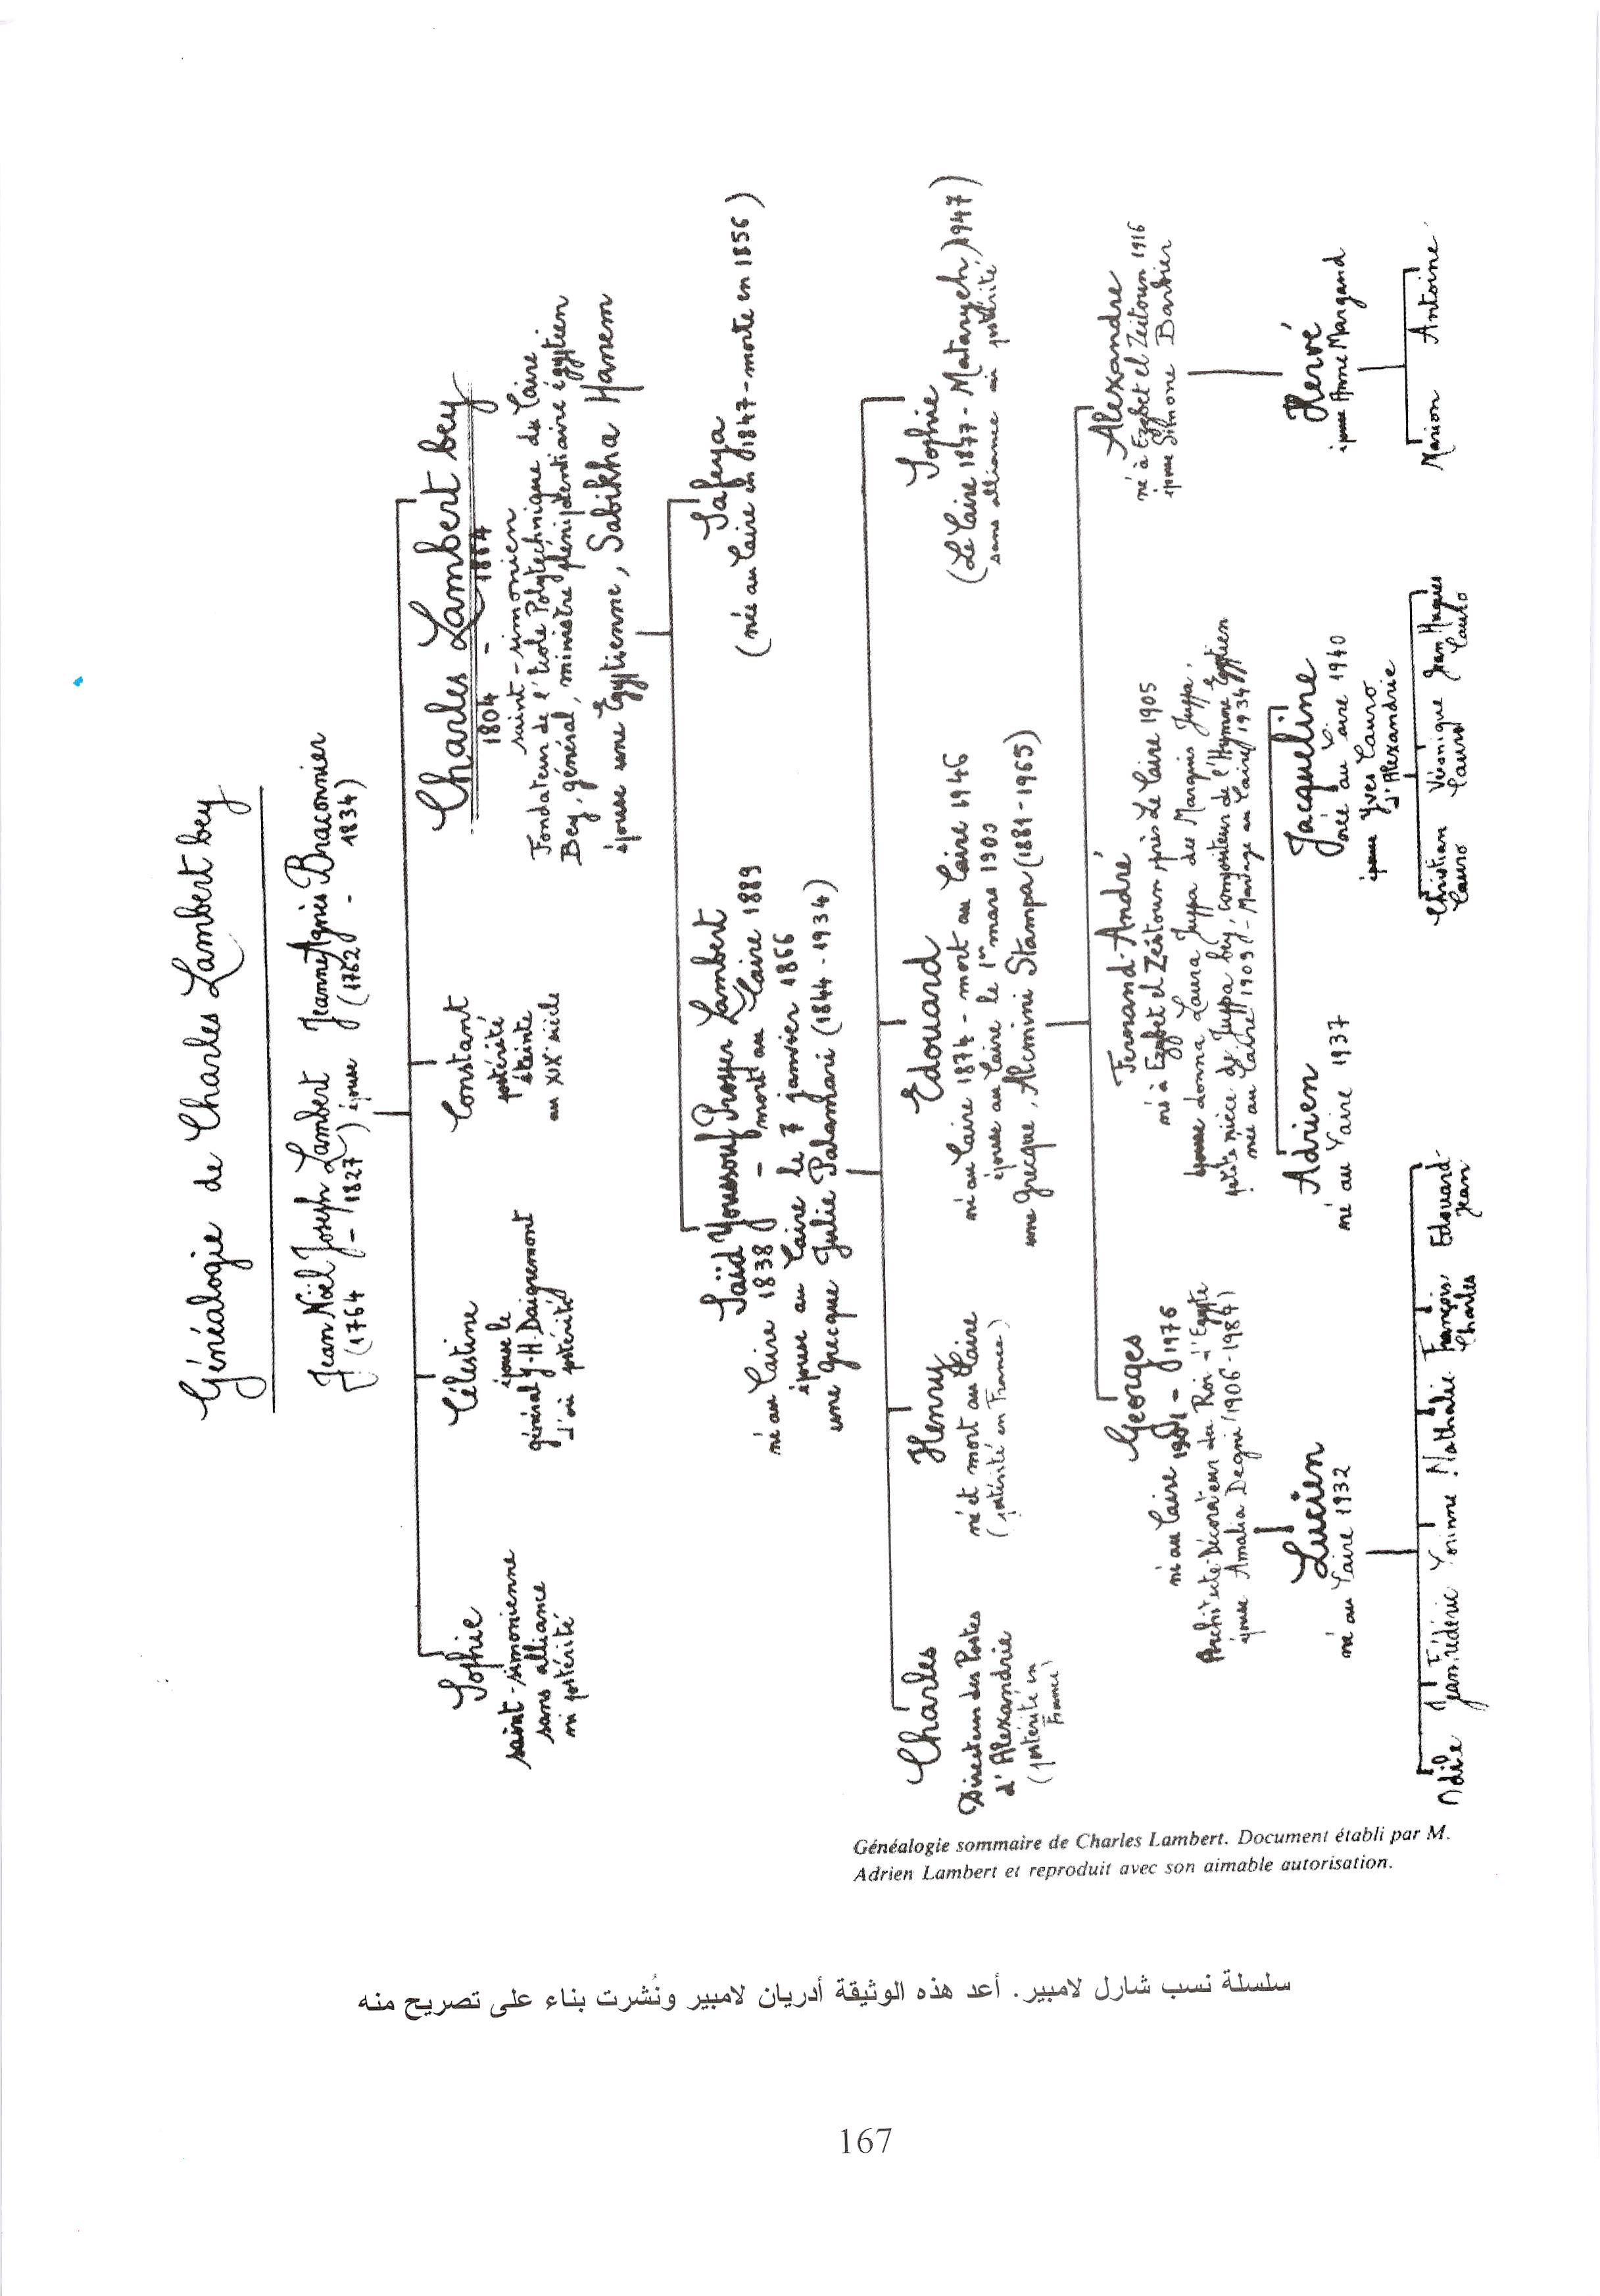 Généalogie de Charles Lambert bey
Jean Noël Joseph Lambert épouse Jeanne Agnès Braconnier
(1764 - 1827) (1762 - 1834)
Sophie
saint-simonienne
sans alliance
ni postérité
Célestine
épouse le
général Y-H. Daigremont
d'où postérité
Constant
postérité
éteinte
au XIXe siècle
Charles Lambert bey
1804 - 1864
saint-simonien
Fondateur de l'École Polytechnique du Caire.
Bey, général, ministre plénipotentiaire égyptien
épouse une Égyptienne, Sabikha Hanem
Saïd Youssouf Prosper Lambert
né au Caire 1838 - mort au Caire 1889
épouse au Caire le 7 janvier 1866
une grecque Julie Palamari (1844-1934)
Safeya
(née au Caire en 1847 - morte en 1856)
Charles
Directeur des Postes
d'Alexandrie
(postérité en
France)
Henry
né et mort au Caire
(postérité en France)
Edouard
né au Caire 1874 - mort au Caire 1946
épouse au Caire le 1er mars 1900
une Grecque, Alcmini Stampa (1881-1965)
Sophie
(Le Caire 1877 - Mataryeh 1947)
sans alliance ni postérité
Georges
né au Caire 1901 - 1976
Architecte-Décorateur du Roi d'Egypte
épouse Amalia Degni (1906-1984)
Fernand-André
né à Ezbet el Zeitoun près Le Caire 1905
épouse donna Laura Juppa des Marquis Juppa,
petite nièce de Juppa bey, compositeur de l'Hymne Égyptien
née au Caire 1909 - Mariage au Caire 1934
Alexandre
né à Ezbet el Zeitoun 1916
épouse Simone Barbier
Lucien
né au Caire 1932
Adrien
né au Caire 1937
Jacqueline
née au Caire 1940
épouse Yves Cauro
d'Alexandrie
Hervé
épouse Anne Margand
Odile Jean-Frédéric Corinne Nathalie François-Charles Edouard-Jean
Christian Cauro Véronique Cauro Jean Hugues Cauro
Marion Antoine
Généalogie sommaire de Charles Lambert. Document établi par M.
Adrien Lambert et reproduit avec son aimable autorisation.
سلسلة نسب شارل لامبير. أعد هذه الوثيقة أدريان لامبير ونُشرت بناء على تصريح منه
167